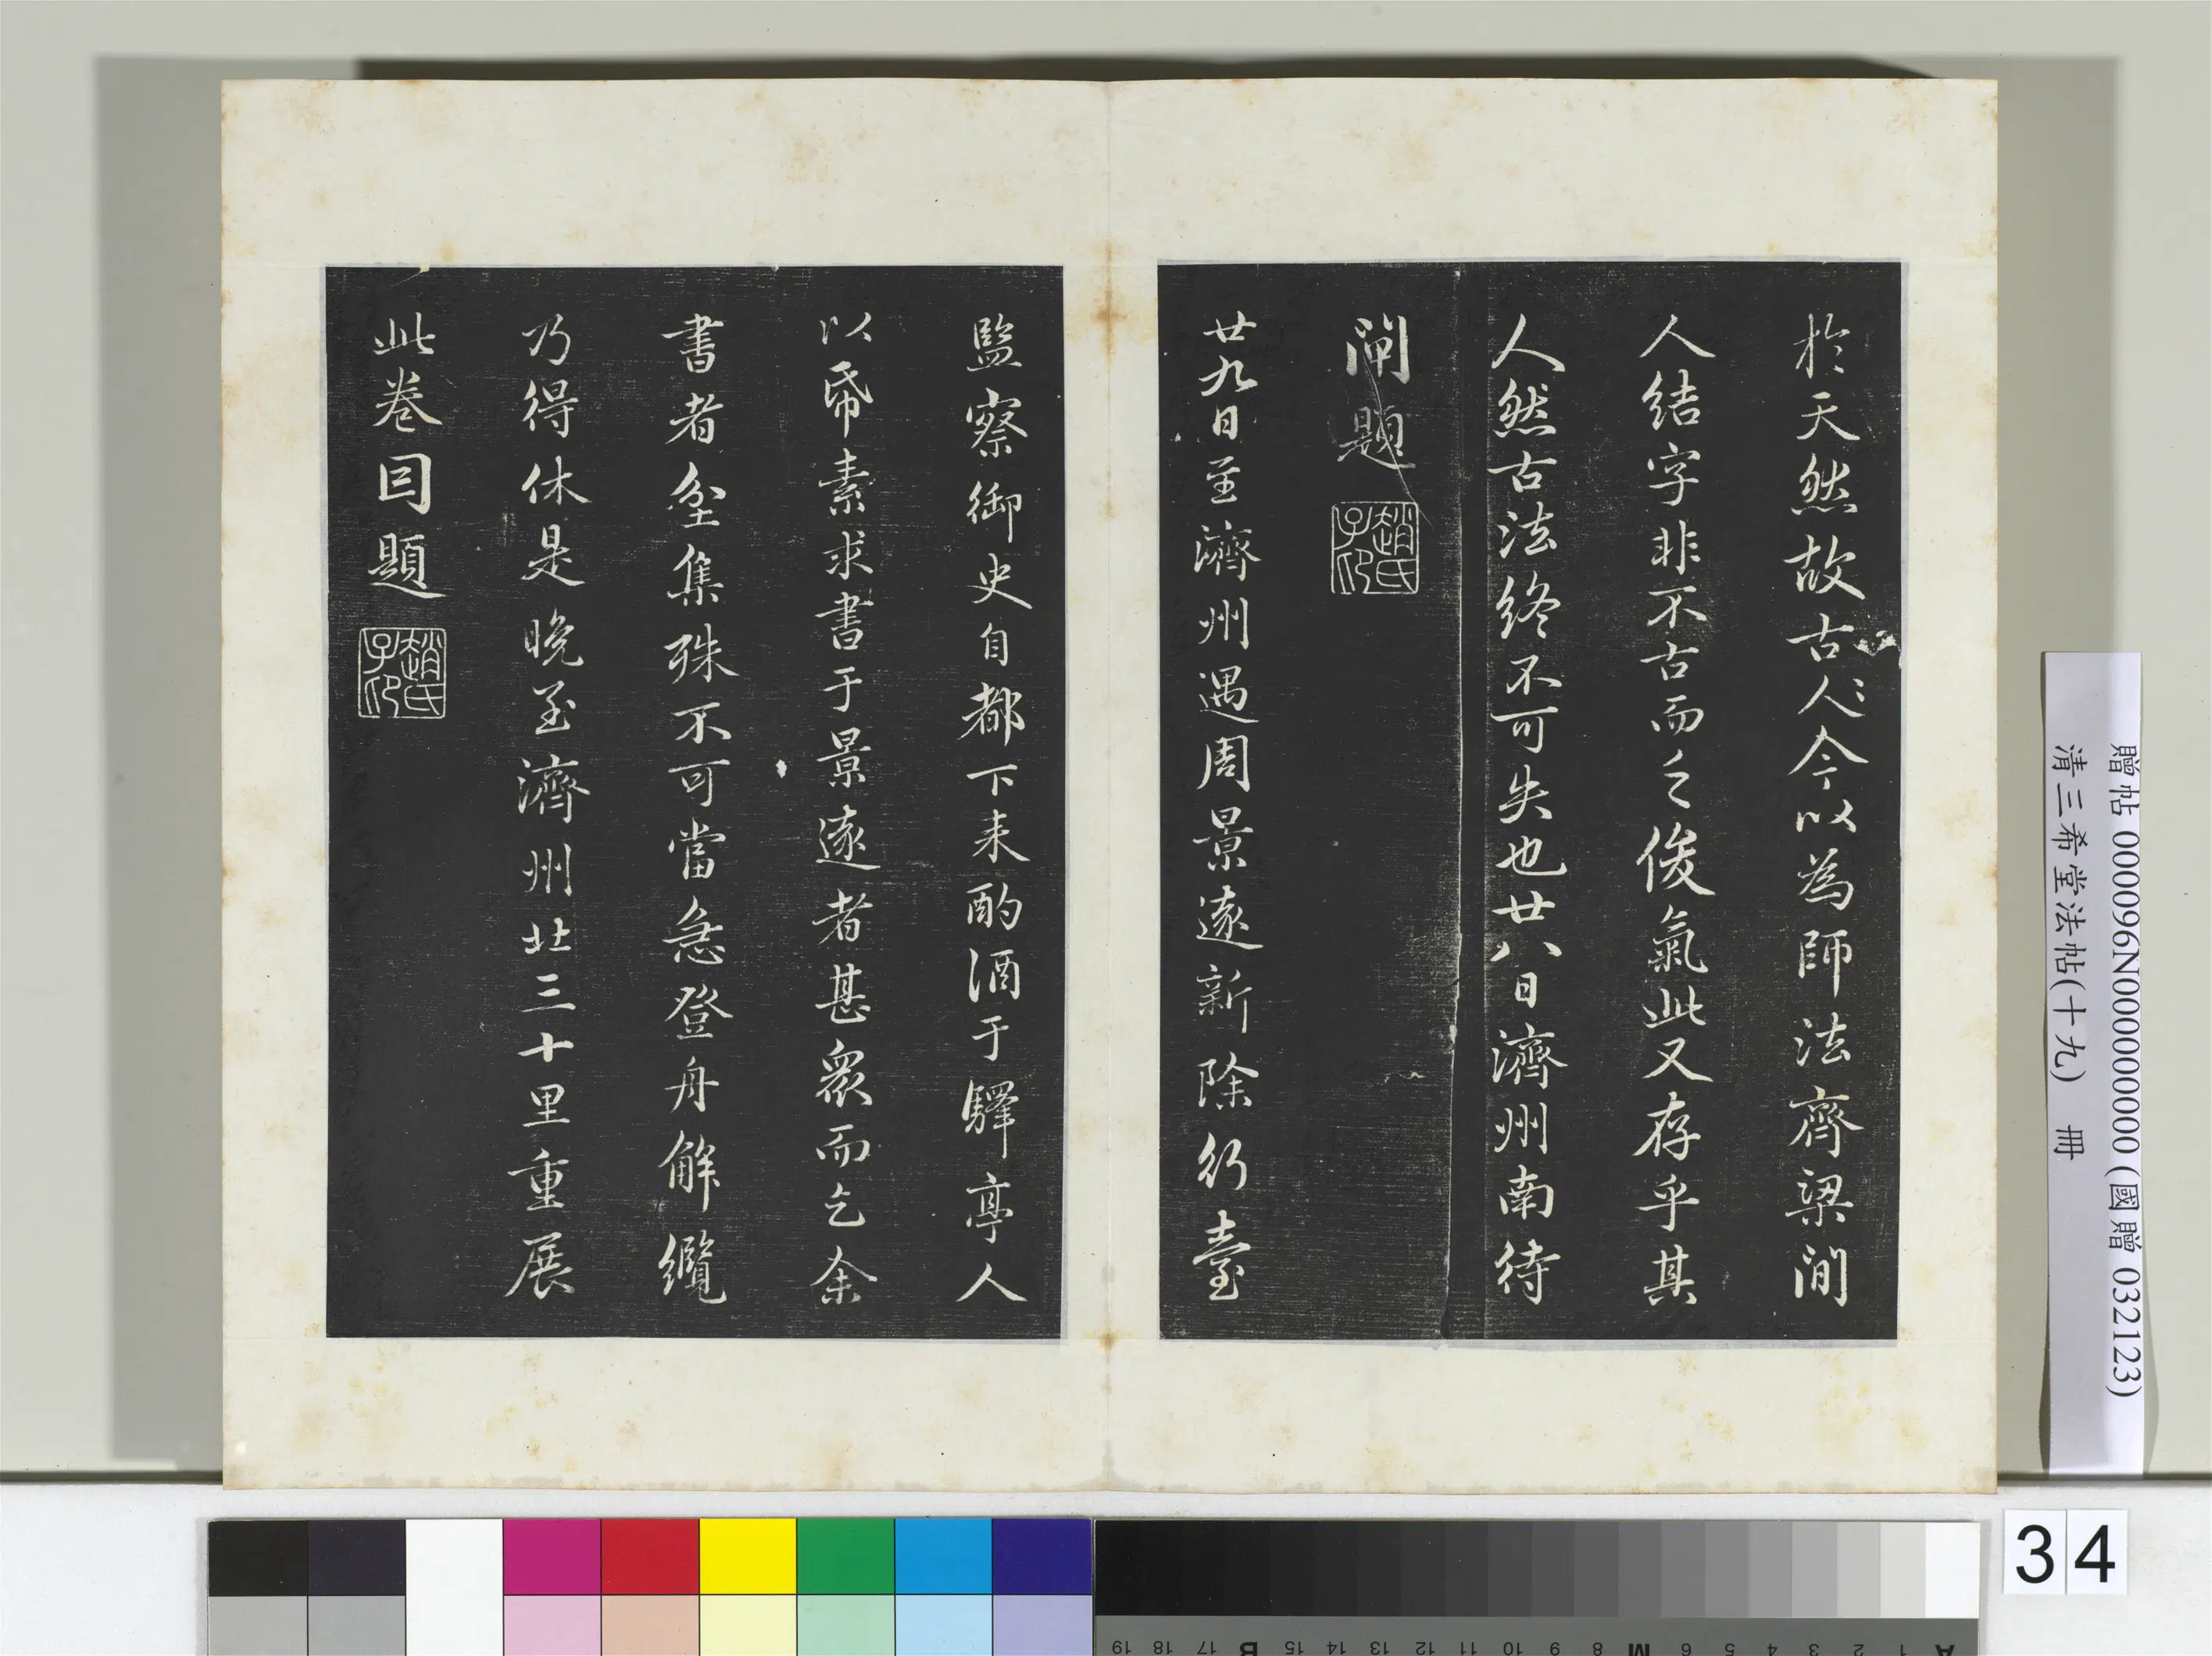 於天然故古人〻今以為師法齊梁間
人結字非不古而乏俊氣此又存乎其
人然古法終不可失也廿八日濟州南待
閘題
趙氏子印
廿九日至濟州遇周景遠新除行臺
監察御史自都下来酌酒于驛亭人
以帋素求書于景遠者甚衆而乞余
書者坌集殊不可當急登舟解纜
乃得休是晚至濟州北三十里重展
此卷因題
趙氏子印
贈帖 000096N000000000 (國贈 032123)
清三希堂法帖(十九) 冊
34
A 1 2 3 4 5 6 M 8 9 10 11 12 13 14 15 B 17 18 19